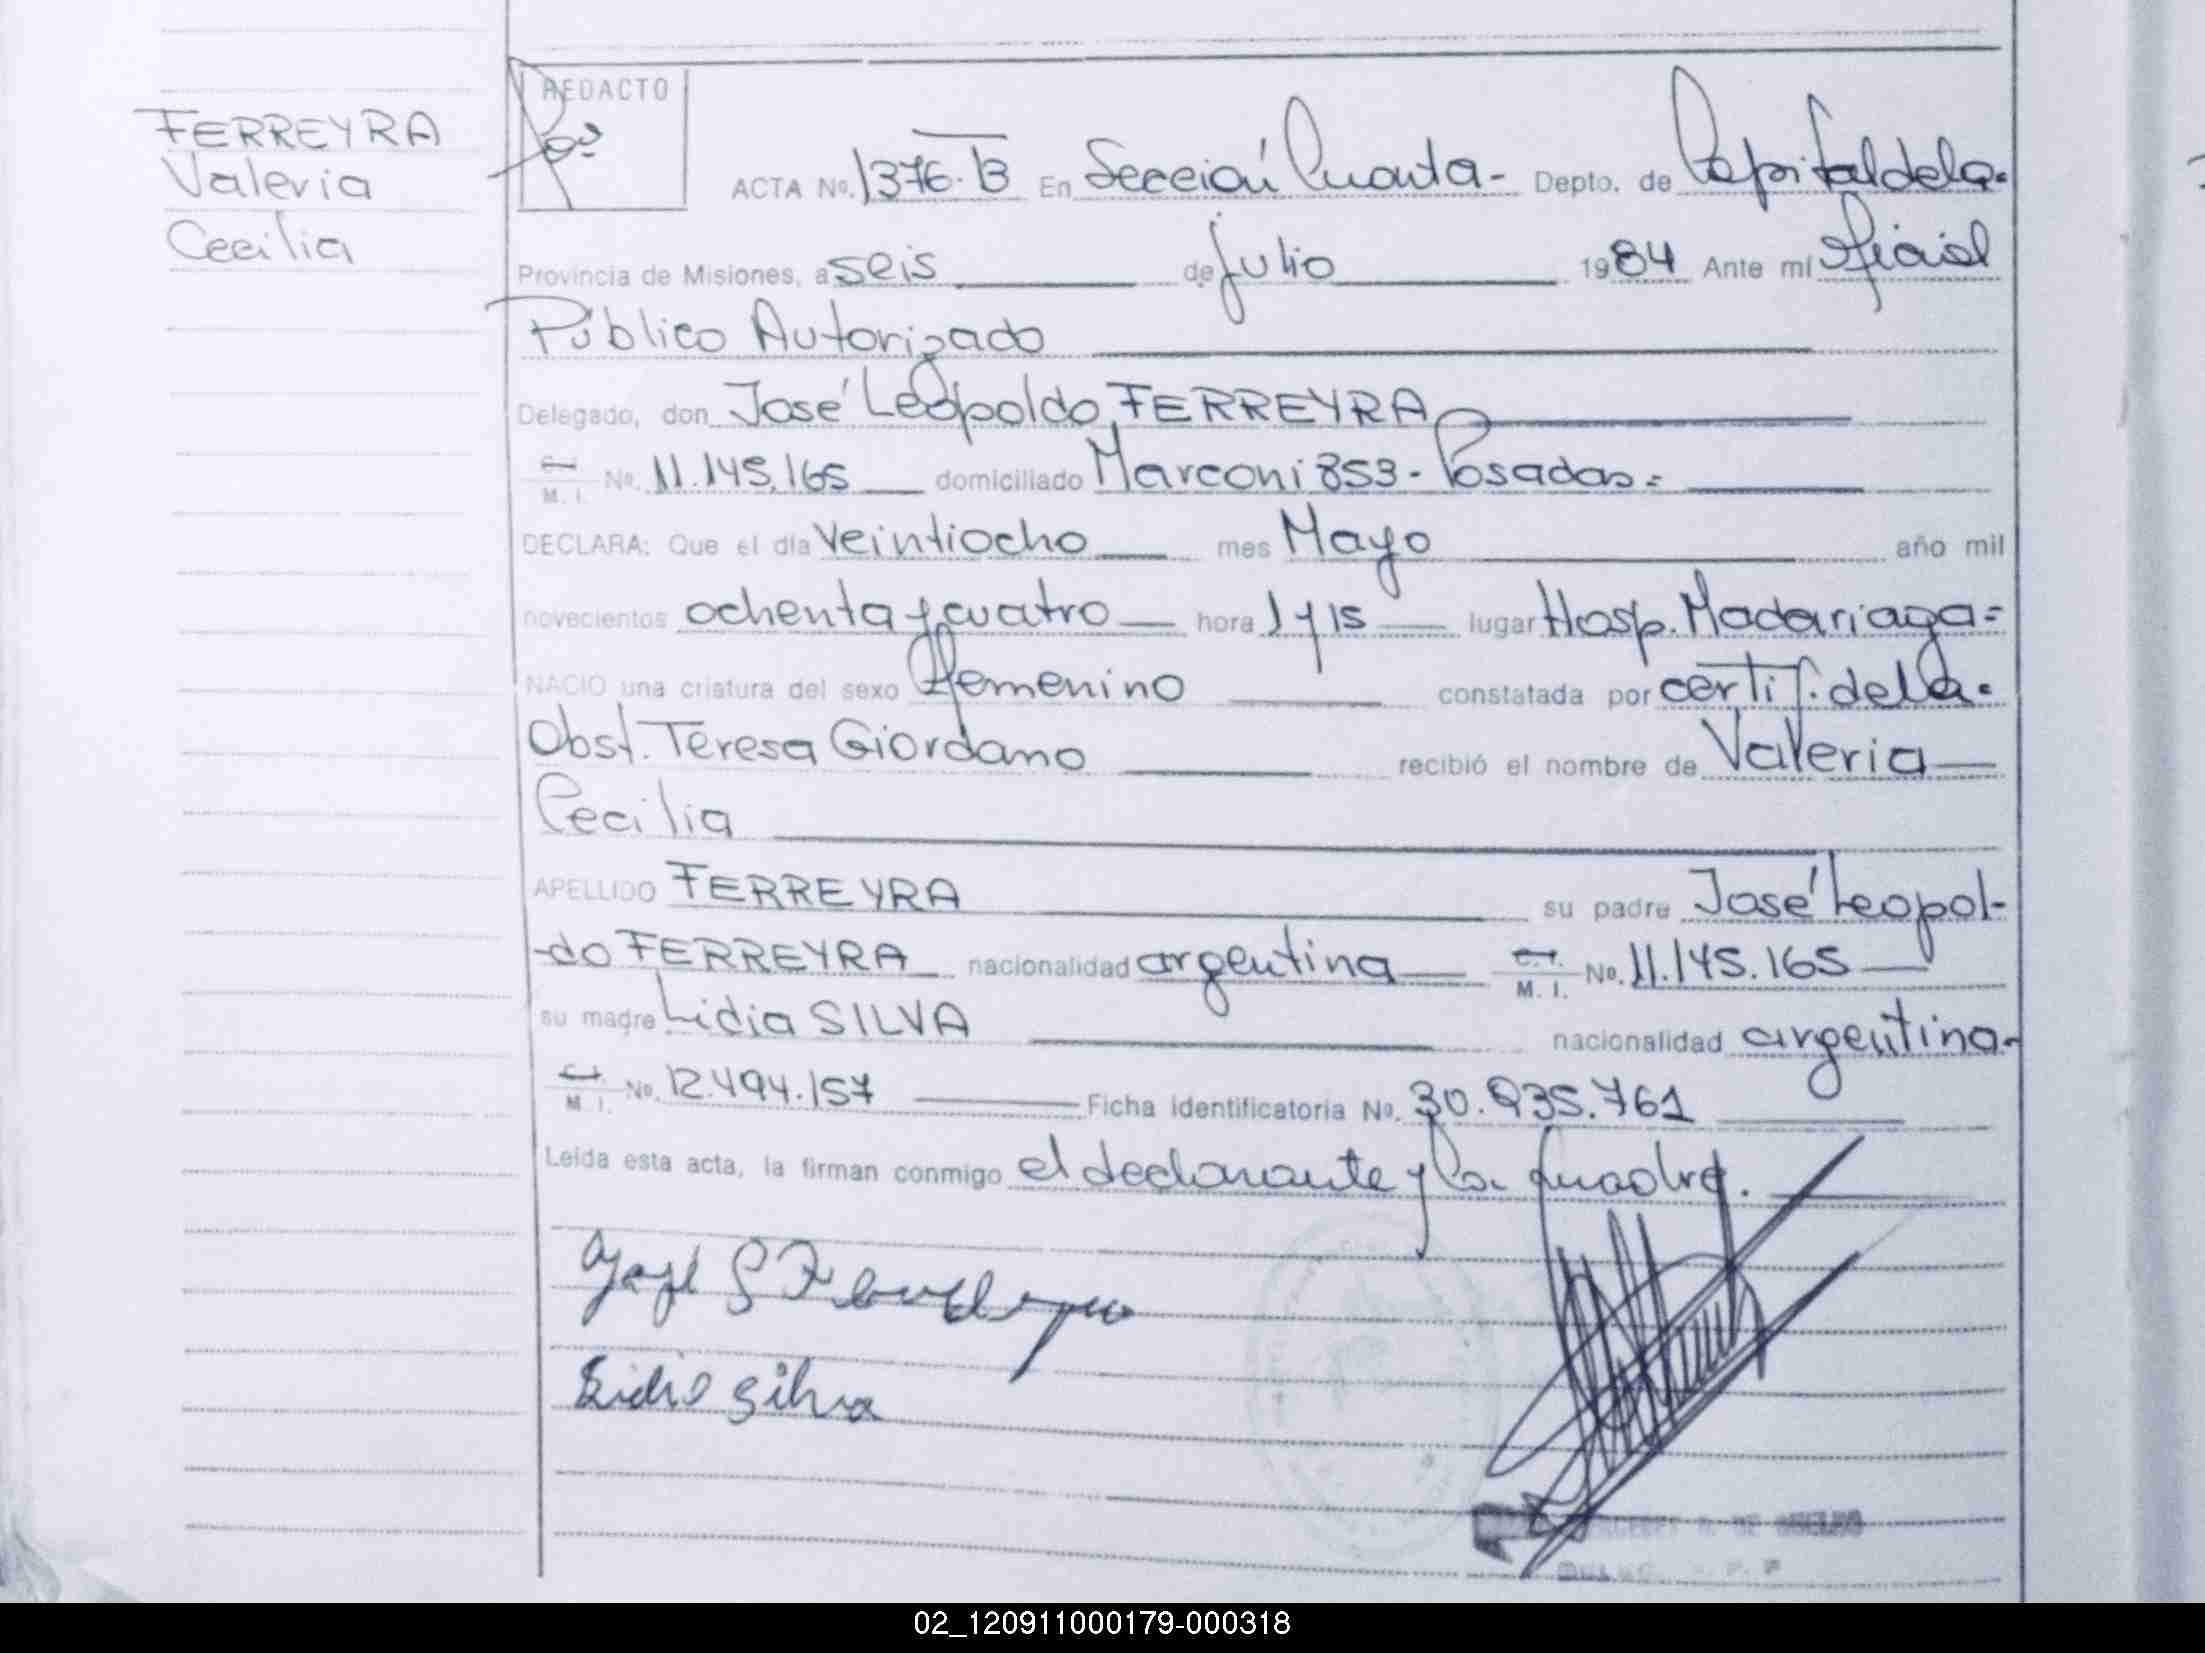 FERREYRA
Valeria
Cecilia
REDACTO
ACTA No. 1376.B En Sección Cuarta- Depto. de Capital de la-
Provincia de Misiones, a seis de julio 1984 Ante mí Oficial
Público Autorizado
Delegado, don José Leopoldo FERREYRA
C.I. M. I. No. 11.145.165 domiciliado Marconi 853- Posadas=
DECLARA: Que el día veintiocho mes Mayo año mil
novecientos ochenta y cuatro hora 1 y 15 lugar Hosp. Madariaga=
NACIO una criatura del sexo femenino constatada por certif. de la-
Obst. Teresa Giordano recibió el nombre de Valeria
Cecilia
APELLIDO FERREYRA su padre José Leopol-
-do FERREYRA nacionalidad argentina C.I. M. I. No. 11.145.165
su madre Lidia SILVA nacionalidad argentina-
C.I. M. I. No. 12.494.157 Ficha identificatoria No. 30.935.761
Leída esta acta, la firman conmigo el declarante y la madre.
Lidia Silva
02_120911000179-000318